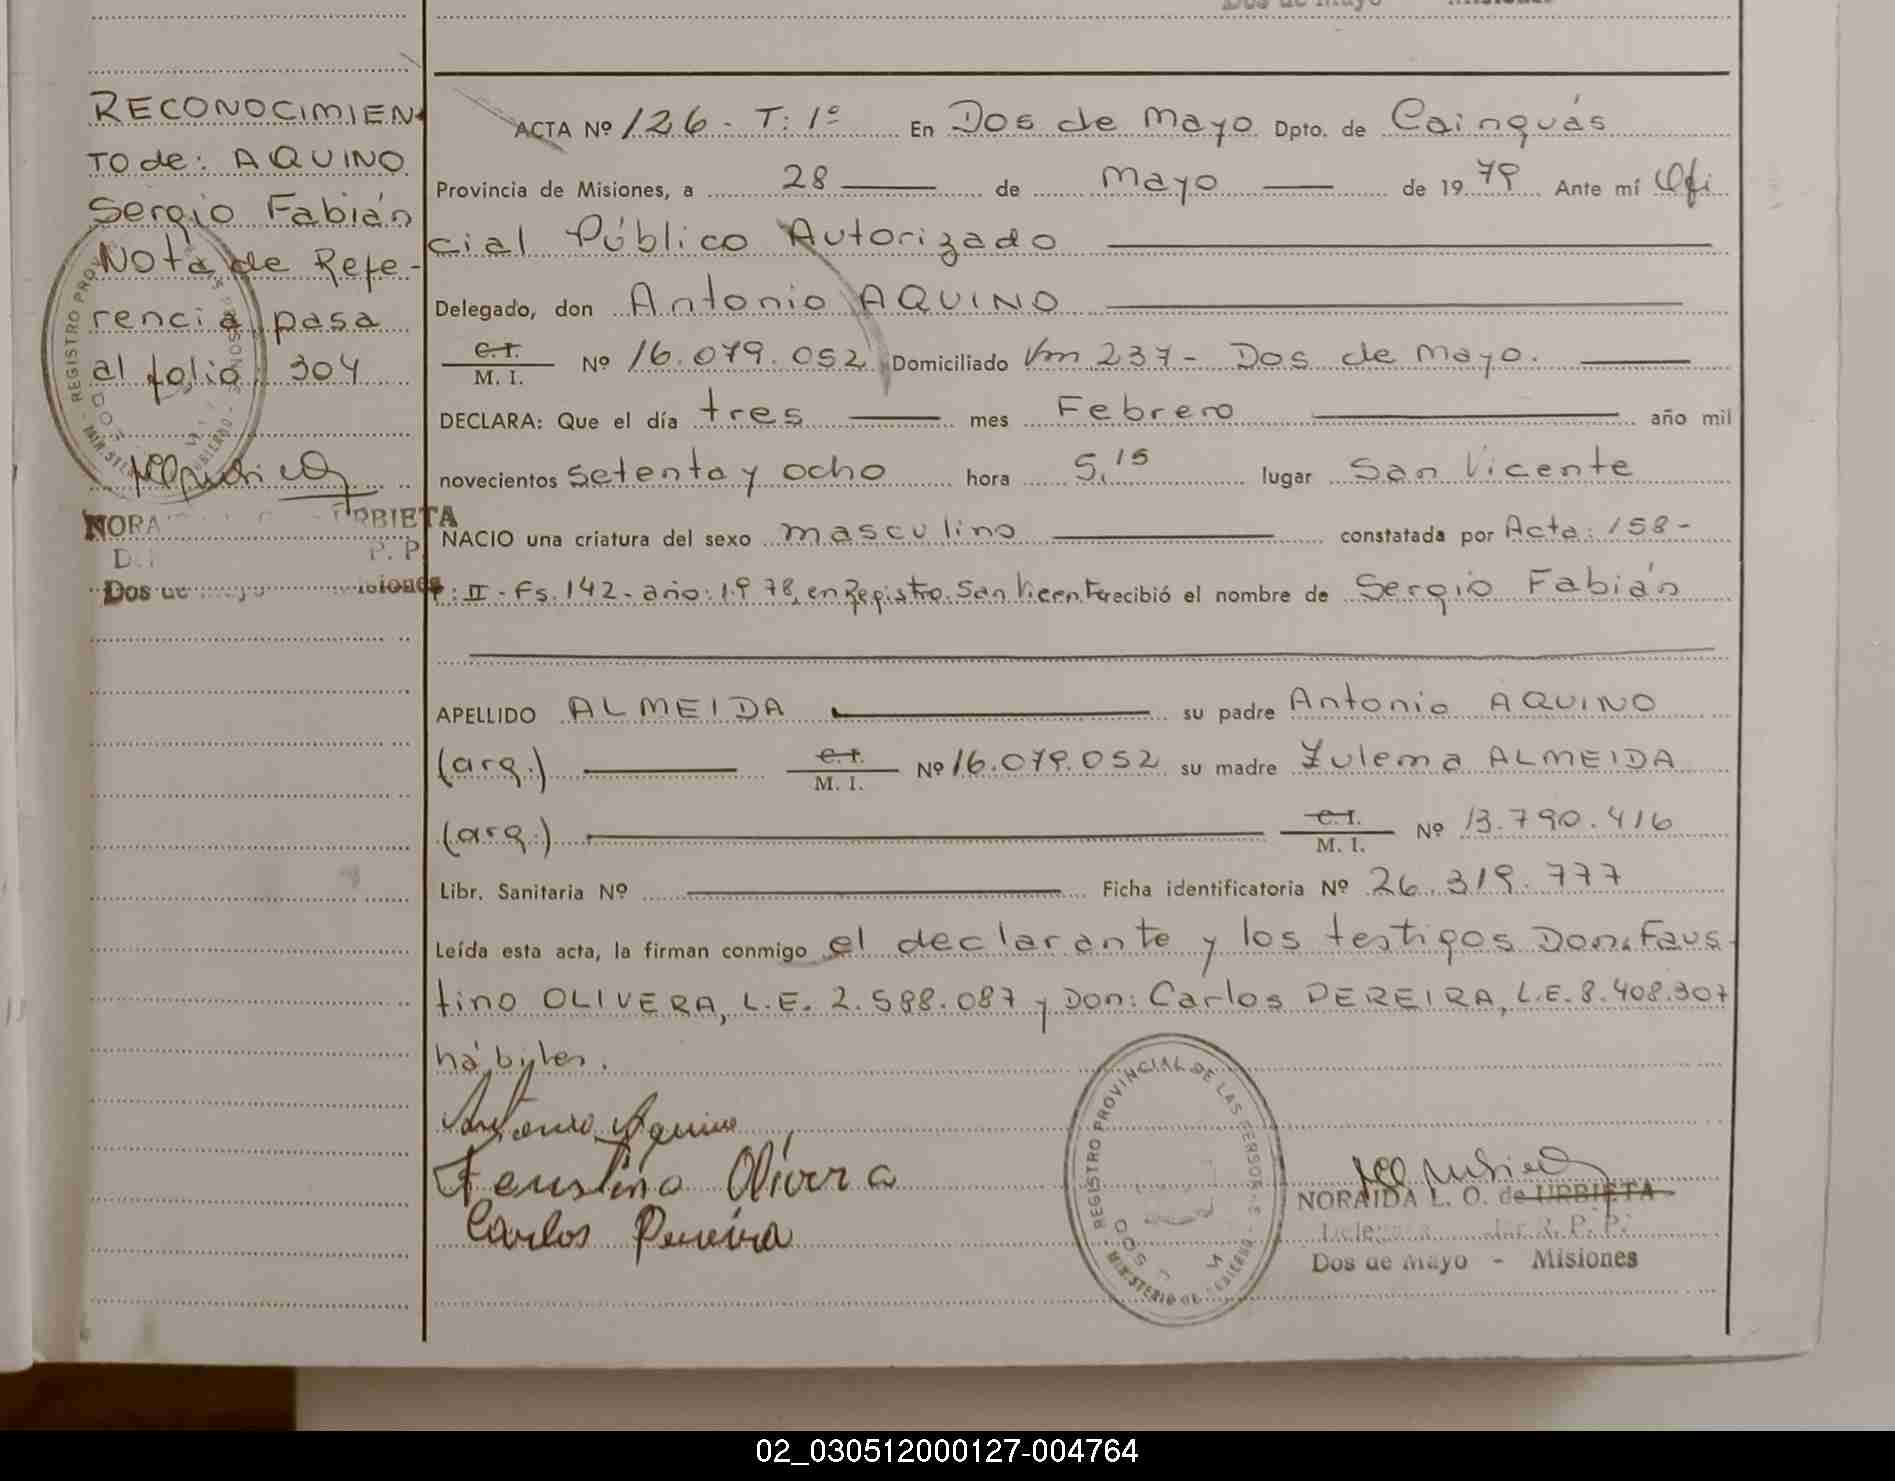 RECONOCIMIEN
TO de: AQUINO
Sergio Fabián
Nota de Refe-
rencia pasa
al folio 304
NORA URBIETA
D. P. P.
Dos de Mayo Misiones
ACTA Nº 126 - T: 1º En Dos de Mayo Dpto. de Cainguás
Provincia de Misiones, a 28 de Mayo de 1979 Ante mí Ofi
cial Público Autorizado
Delegado, don Antonio AQUINO
C. I.
M. I. Nº 16.079.052 Domiciliado Km 237 - Dos de Mayo.
DECLARA: Que el día tres mes Febrero año mil
novecientos setenta y ocho hora 5,15 lugar San Vicente
NACIO una criatura del sexo masculino constatada por Acta: 158 -
T: II - Fs. 142 - año: 1978, en Registro San Vicente recibió el nombre de Sergio Fabián
APELLIDO ALMEIDA su padre Antonio AQUINO
(arg.) C. I.
M. I. Nº 16.079.052 su madre Zulema ALMEIDA
(arg.) C. I.
M. I. Nº 13.790.416
Libr. Sanitaria Nº Ficha identificatoria Nº 26.319.777
Leída esta acta, la firman conmigo el declarante y los testigos Don. Faus
tino OLIVERA, L.E. 2.588.087 y Don: Carlos PEREIRA, L.E. 8.408.307
hábiles.
Antonio Aquino
Feustino Olivera
Carlos Pereira
REGISTRO PROVINCIAL DE LAS PERSONAS
MINISTERIO DE GOBIERNO
NORAIDA L. O. de URBIETA
R. P. P.
Dos de Mayo - Misiones
02_030512000127-004764